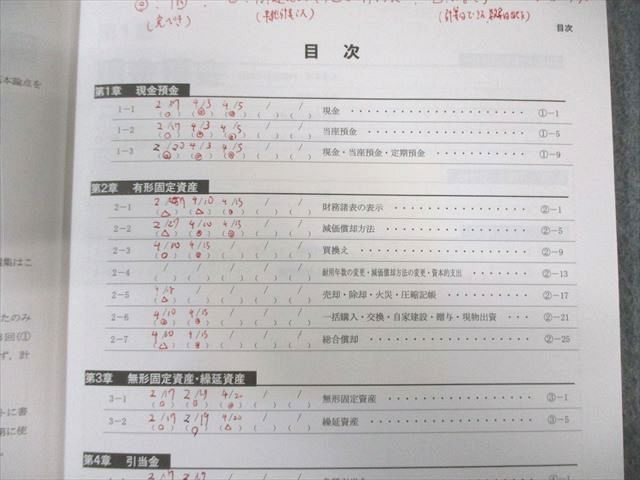 (完ぺき)
目次
目 次
第1章 現金預金
1-1 2/17 4/3 4/5 / / 現金 ①-1
1-2 2/17 4/3 4/5 / / 当座預金 ①-5
1-3 2/20 4/3 4/5 / / 現金・当座預金・定期預金 ①-9
第2章 有形固定資産
2-1 4/10 4/15 / / 財務諸表の表示 ②-1
2-2 2/27 4/9 4/15 / / 減価償却方法 ②-5
2-3 4/10 4/15 / / / 買換え ②-9
2-4 / / / / / 耐用年数の変更・減価償却方法の変更・資本的支出 ②-13
2-5 / / / / 売却・除却・火災・圧縮記帳 ②-17
2-6 4/10 4/15 / / / 一括購入・交換・自家建設・贈与・現物出資 ②-21
2-7 4/10 4/15 / / / 総合償却 ②-25
第3章 無形固定資産・繰延資産
3-1 2/17 2/19 4/20 / / 無形固定資産 ③-1
3-2 2/17 2/19 4/20 / / 繰延資産 ③-5
第4章 引当金
本論点を
題集はこ
たのみ
3回(①
ず，計
トに書
第に使